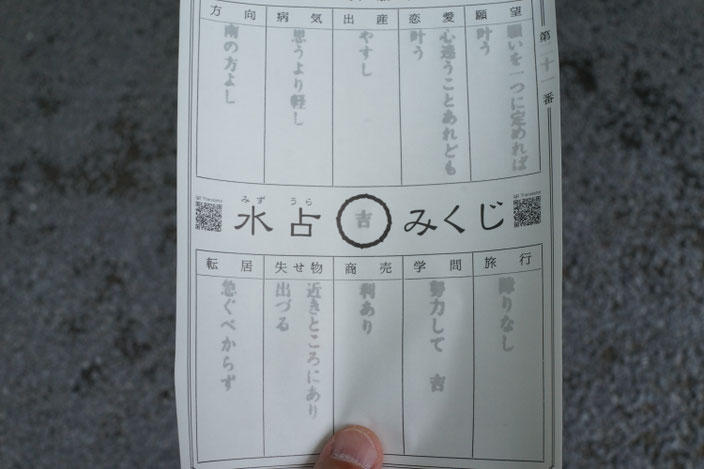 第二十一番
願望
願いを一つに定めれば
叶う
恋愛
心迷うことあれども
叶う
出産
やすし
病気
思うより軽し
方向
南の方よし
みず うら
水占 吉 みくじ
旅行
障りなし
学問
努力して 吉
商売
利あり
失せ物
近きところにあり
出づる
転居
急ぐべからず